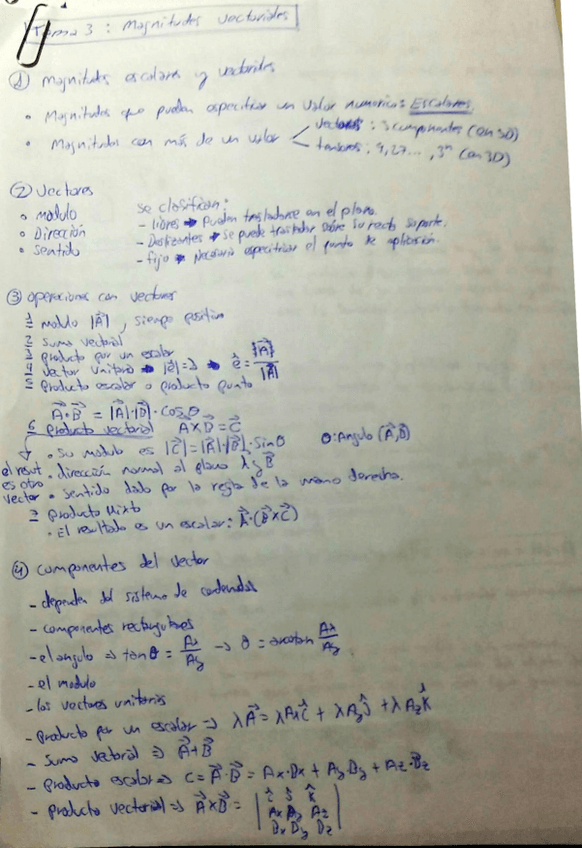 Tema 3 : Magnitudes vectoriales
① Magnitudes escalares y vectoriales
• Magnitudes que pueden especificar un valor numerico: Escalares
• Magnitudes con más de un valor < vectores : 3 componentes (en 3D)
tensores : 9, 27... , 3ⁿ (en 3D)
② Vectores
• modulo
• Dirección
• Sentido
Se clasifican:
- libres → Pueden trasladarse en el plano.
- Deslizantes → Se puede trasladar sobre su recta soporte.
- fijo → Necesario especificar el punto de aplicación.
③ Operaciones con vectores
1 modulo |A⃗| , siempre positivo
2 suma vectorial
3 producto por un escalar
4 Vector unitario → |e⃗|=1 → ê = A⃗/|A⃗|
5 Producto escalar o producto punto
A⃗·B⃗ = |A⃗|·|B⃗|·cosθ
6 Producto vectorial A⃗xB⃗=C⃗
• Su modulo es |C⃗|=|A⃗|·|B⃗|·sinθ θ:Angulo (A⃗,B⃗)
el result
es otro
vector
• dirección normal al plano A⃗ y B⃗
• sentido dado por la regla de la mano derecha.
7 Producto Mixto
• El resultado es un escalar: A⃗·(B⃗xC⃗)
④ Componentes del vector
- dependen del sistema de cordenadas
- componentes rectangulares
- el angulo ⇒ tanθ = Ax/Ay → θ = arcotan Ax/Ay
- el modulo
- los vectores unitarios
- producto por un escalar ⇒ λA⃗ = λAxî + λAyĵ + λAzk̂
- Suma vectorial ⇒ A⃗+B⃗
- Producto escalar ⇒ C = A⃗·B⃗ = Ax·Bx + Ay·By + Az·Bz
- Producto vectorial ⇒ A⃗xB⃗ = | î ĵ k̂
Ax Ay Az
Bx By Bz |